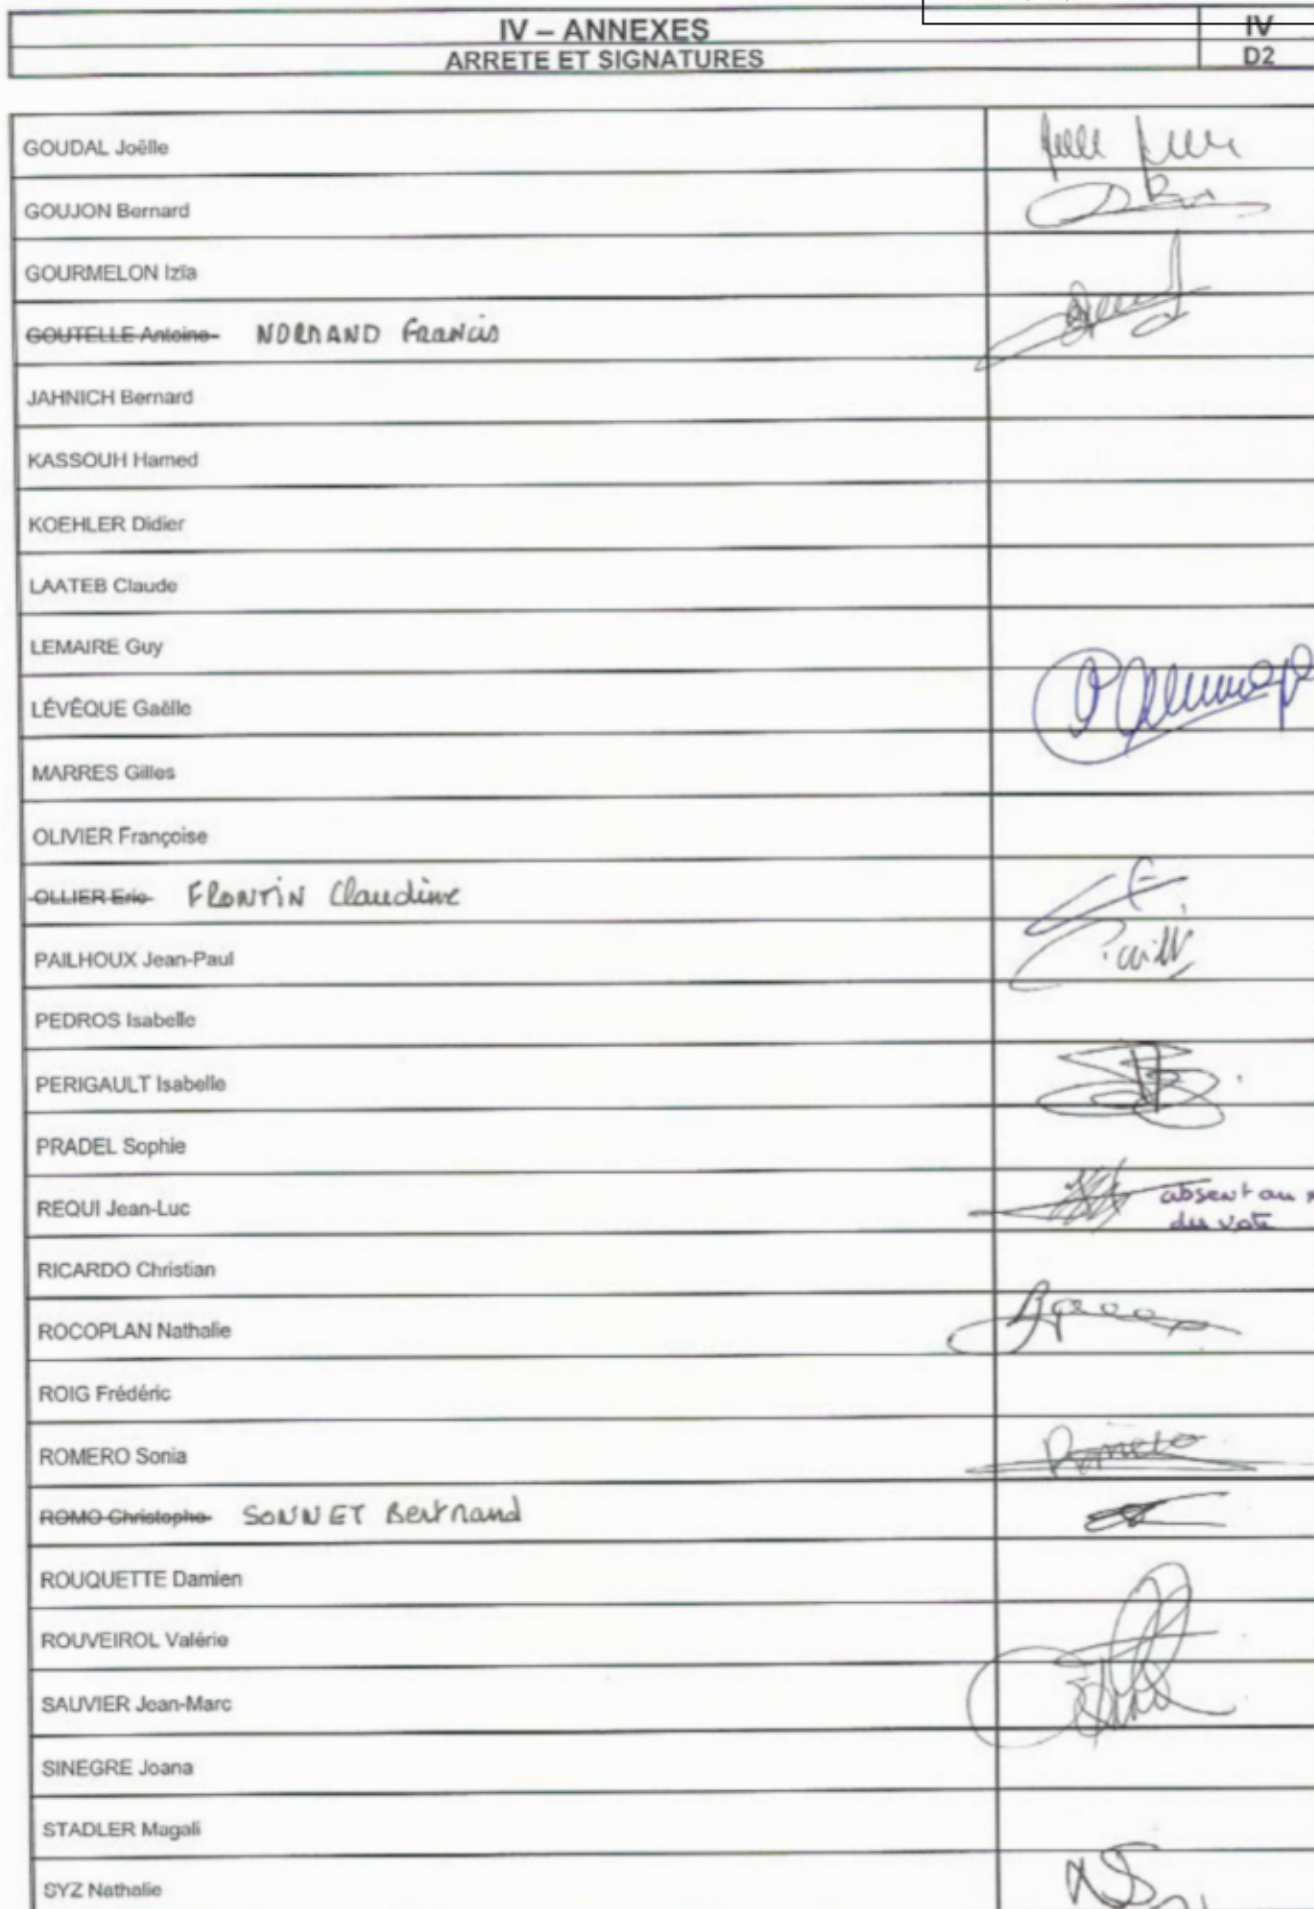 IV – ANNEXES
IV
ARRETE ET SIGNATURES
D2
GOUDAL Joëlle
GOUJON Bernard
GOURMELON Izïa
GOUTELLE Antoine NORMAND Francis
JAHNICH Bernard
KASSOUH Hamed
KOEHLER Didier
LAATEB Claude
LEMAIRE Guy
LÉVÊQUE Gaëlle
MARRES Gilles
OLIVIER Françoise
OLLIER Eric FRONTIN Claudine
PAILHOUX Jean-Paul
PEDROS Isabelle
PERIGAULT Isabelle
PRADEL Sophie
REQUI Jean-Luc absent au
du vote
RICARDO Christian
ROCOPLAN Nathalie
ROIG Frédéric
ROMERO Sonia Romero
ROMO Christophe SONNET Bertrand
ROUQUETTE Damien
ROUVEIROL Valérie
SAUVIER Jean-Marc
SINEGRE Joana
STADLER Magali
SYZ Nathalie